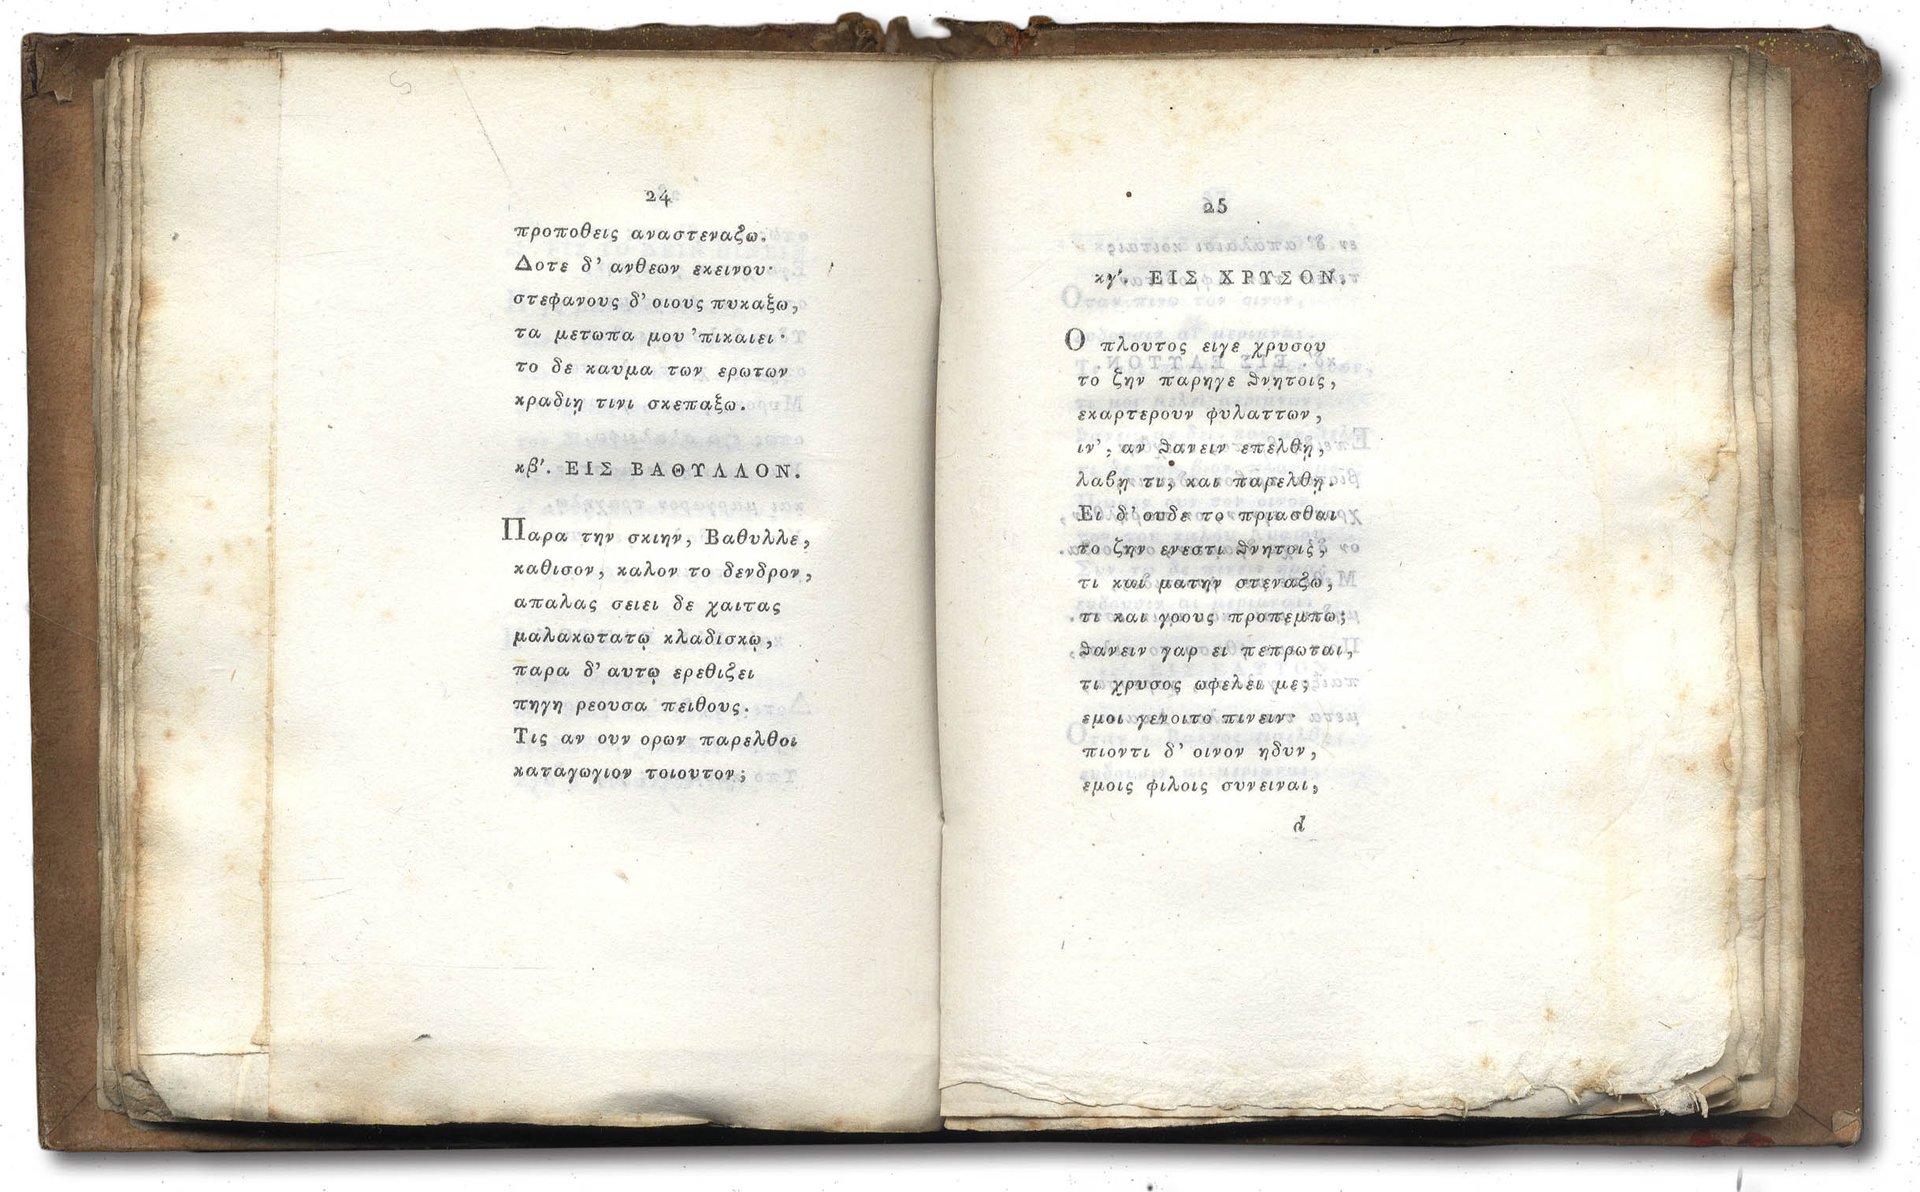 24
προποθεις αναστεναζω.
Δοτε δ' ανθεων εκεινου·
στεφανους δ' οιους πυκαξω,
τα μετωπα μου 'πικαιει·
το δε καυμα των ερωτων
κραδιῃ τινι σκεπαξω.
κβ'. ΕΙΣ ΒΑΘΥΛΛΟΝ.
Παρα την σκιην, Βαθυλλε,
καθισον, καλον το δενδρον,
απαλας σειει δε χαιτας
μαλακωτατῳ κλαδισκῳ,
παρα δ' αυτῳ ερεθιζει
πηγη ρεουσα πειθους.
Τις αν ουν ορων παρελθοι
καταγωγιον τοιουτον;
25
κγ'. ΕΙΣ ΧΡΥΣΟΝ.
Ο πλουτος ειγε χρυσου
το ζην παρηγε ϑνητοις,
εκαρτερουν φυλαττων,
ιν', αν ϑανειν επελθῃ,
λαϐῃ τι, και παρελθῃ.
Ει δ' ουδε το πριασθαι
το ζην ενεστι ϑνητοις,
τι και ματην στεναζω,
τι και γοους προπεμπω;
ϑανειν γαρ ει πεπρωται,
τι χρυσος ωφελει με;
εμοι γενοιτο πινειν·
πιοντι δ' οινον ηδυν,
εμοις φιλοις συνειναι,
d